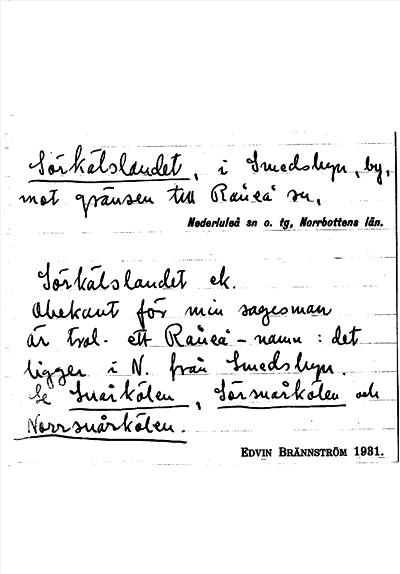 Sörkälslandet, i Smedsbyn, by,
mot gränsen till Råneå sn,
Nederluleå sn o. tg, Norrbottens län.
Sörkälslandet ek.
Obekant för min sagesman
är trol. ett Råneå-namn: det
ligger i N. från Smedsbyn.
Se Snårkölen, Sörsnårkölen och
Norrsnårkölen.
EDVIN BRÄNNSTRÖM 1931.